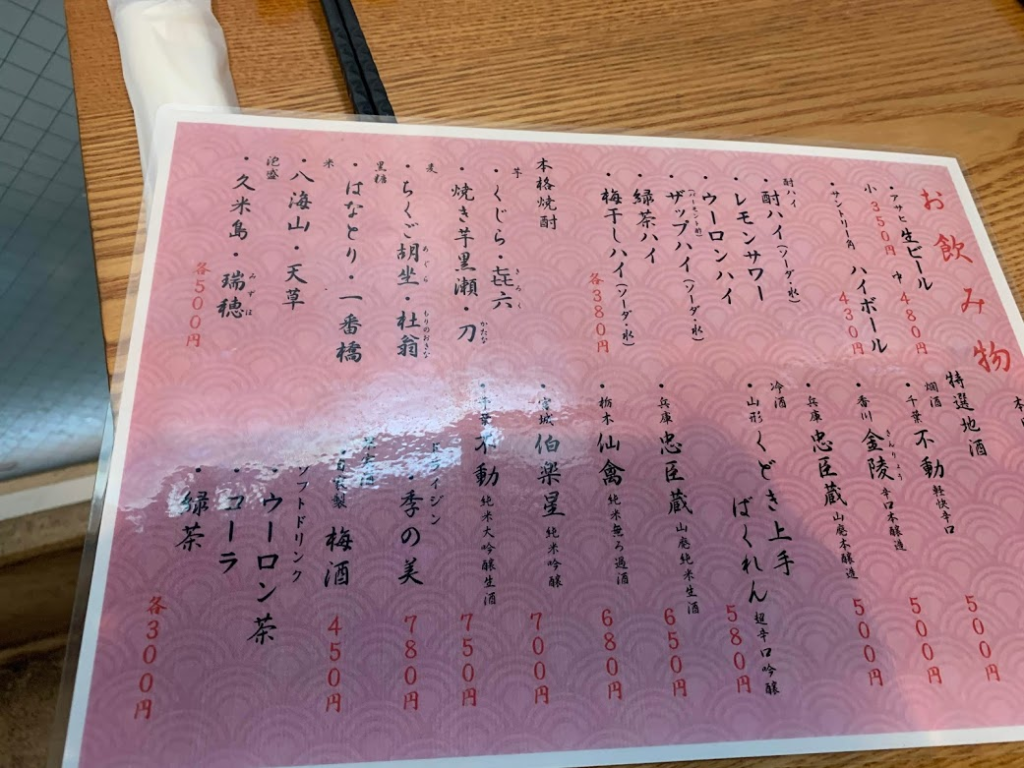 お飲み物
・アサヒ生ビール 中 480円
小 350円
・サントリー角 ハイボール 430円
酎ハイ
・酎ハイ(ソーダ・水)
・レモンサワー
・ウーロンハイ
・ザップハイ(ソーダ・水)
(バーモント酢)
・緑茶ハイ
・梅干しハイ(ソーダ・水)
各380円
本格焼酎
芋
・くじら・㐂六
きろく
・焼き芋黒瀬・刀
かたな
麦
・ちくご胡坐・杜翁
あぐら もりのおきな
黒糖
・はなとり・一番橋
米
・八海山・天草
泡盛
・久米島・瑞穂
みずほ
各500円
特選地酒
500円
燗酒
・千葉 不動 軽快辛口 500円
・香川 金陵 辛口本醸造 500円
きんりょう
・兵庫 忠臣蔵 山廃本醸造
冷酒
・山形 くどき上手 ばくれん 超辛口吟醸 580円
・兵庫 忠臣蔵 山廃純米生酒 650円
・栃木 仙禽 純米無ろ過酒 680円
・宮城 伯楽星 純米吟醸 700円
・千葉 不動 純米大吟醸生酒 750円
ドライジン
・季の美 780円
・自家製 梅酒 450円
ソフトドリンク
・ウーロン茶
・コーラ
・緑茶
各300円